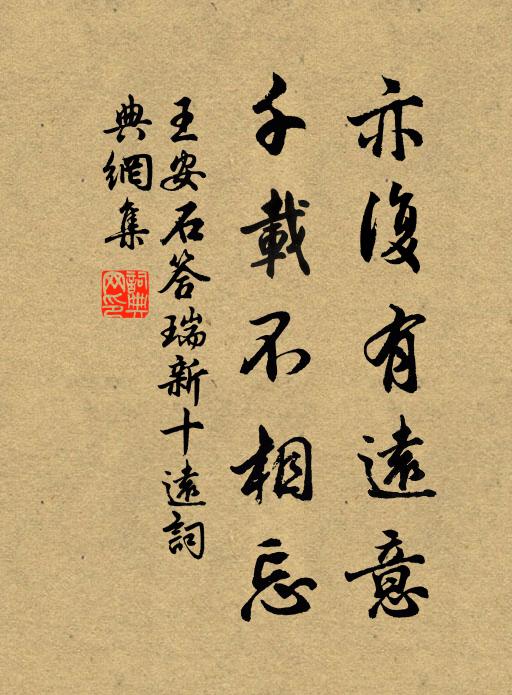 亦復有遠意
千載不相忘
王安石答瑞新十遠詞
典網集
詞典網印